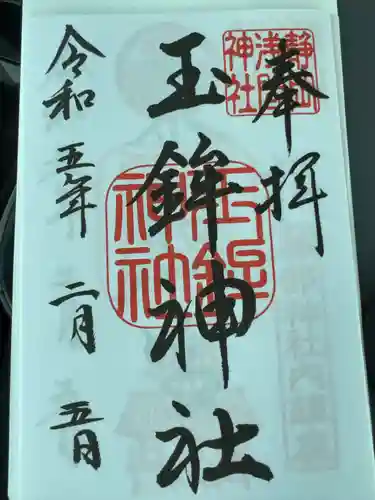 奉拝
静岡浅間神社
玉鉾神社
玉鉾神社
令和五年二月五日